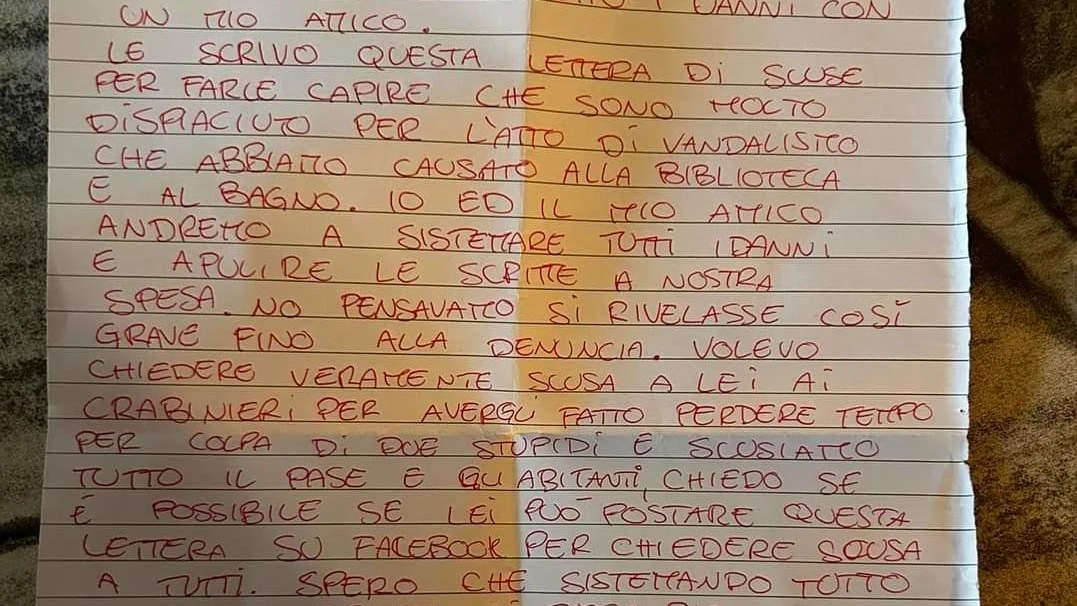 I DANNI CON
UN MIO AMICO.
LE SCRIVO QUESTA LETTERA DI SCUSE
PER FARLE CAPIRE CHE SONO MOLTO
DISPIACIUTO PER L'ATTO DI VANDALISMO
CHE ABBIAMO CAUSATO ALLA BIBLIOTECA
E AL BAGNO. IO ED IL MIO AMICO
ANDREMO A SISTEMARE TUTTI I DANNI
E A PULIRE LE SCRITTE A NOSTRA
SPESA. NO PENSAVAMO SI RIVELASSE COSÍ
GRAVE FINO ALLA DENUNCIA. VOLEVO
CHIEDERE VERAMENTE SCUSA A LEI AI
CRABINIERI PER AVERGLI FATTO PERDERE TEMPO
PER COLPA DI DUE STUPIDI E SCUSIAMO
TUTTO IL PASE E GLI ABITANTI, CHIEDO SE
É POSSIBILE SE LEI PUÓ POSTARE QUESTA
LETTERA SU FACEBOOK PER CHIEDERE SCUSA
A TUTTI. SPERO CHE SISTEMANDO TUTTO